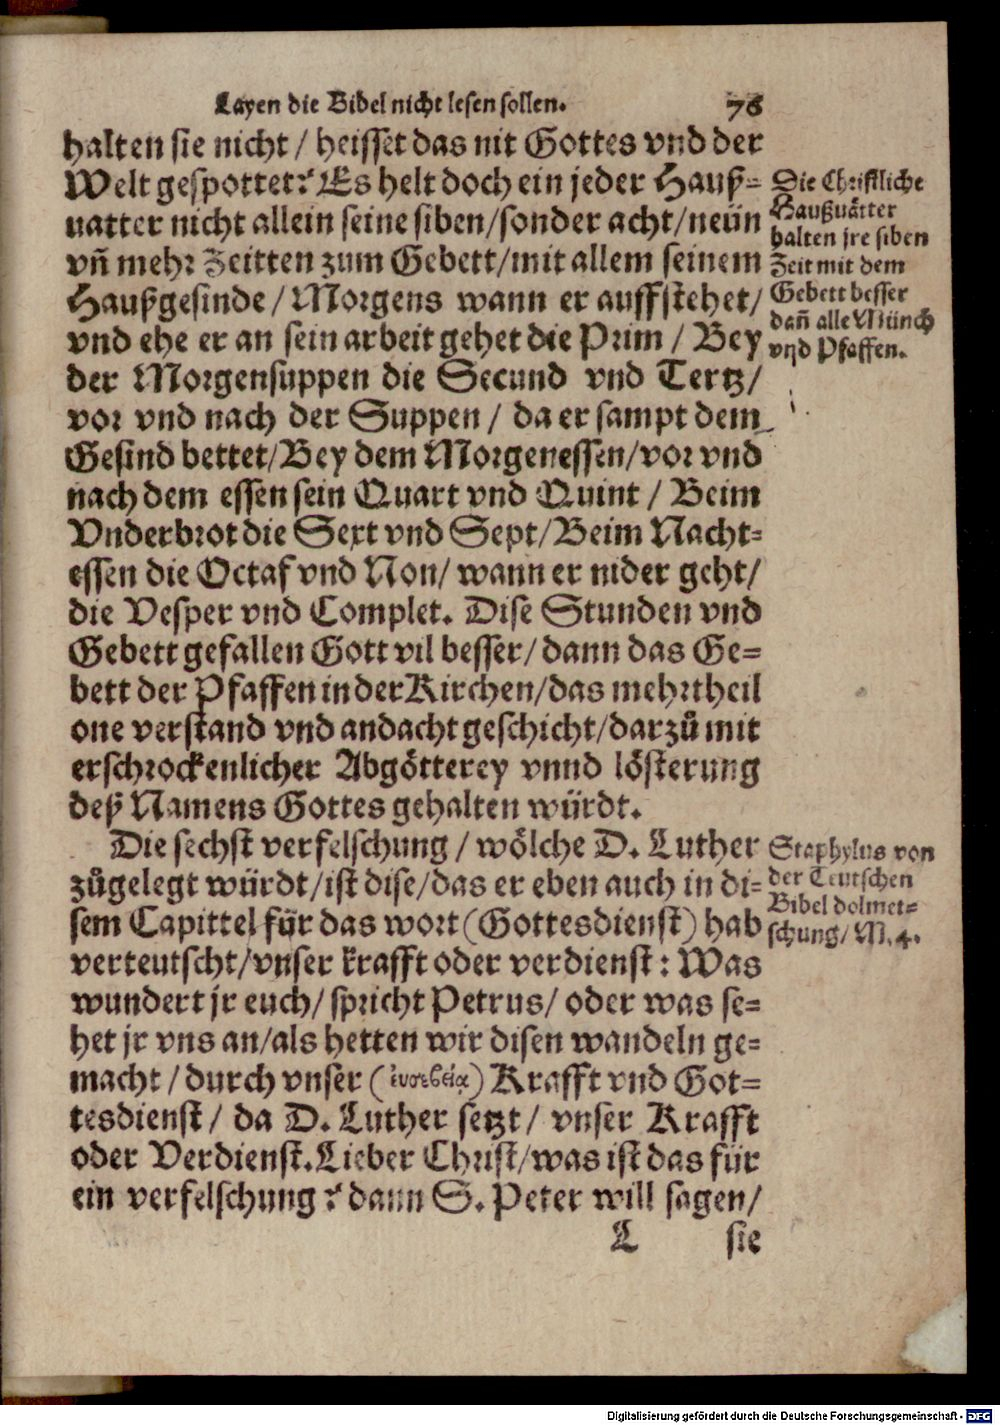 Layen die Bibel nicht lesen sollen. 76
halten sie nicht / heisset das nit Gottes vnd der
Welt gespottet? Es helt doch ein jeder Hauß=
uatter nicht allein seine siben/sonder acht/neün
vñ mehr Zeitten zum Gebett/mit allem seinem
Haußgesinde / Morgens wann er auffstehet/
vnd ehe er an sein arbeit gehet die Prim / Bey
der Morgensuppen die Secund vnd Tertz/
vor vnd nach der Suppen / da er sampt dem
Gesind bettet/Bey dem Morgenessen/vor vnd
nach dem essen sein Quart vnd Quint / Beim
Vnderbrot die Sext vnd Sept/Beim Nacht=
essen die Octaf vnd Non/ wann er nider geht/
die Vesper vnd Complet. Dise Stunden vnd
Gebett gefallen Gott vil besser/dann das Ge=
bett der Pfaffen in der Kirchen/das mehrtheil
one verstand vnd andacht geschicht/darzů mit
erschrockenlicher Abgötterey vnnd lösterung
deß Namens Gottes gehalten würdt.
Die Christliche
Haußuätter
halten jre siben
Zeit mit dem
Gebett besser
dañ alle Münch
vnd Pfaffen.
Die sechst verfelschung / wölche D. Luther
zůgelegt würdt/ist dise/das er eben auch in di=
sem Capittel für das wort (Gottesdienst) hab
verteutscht/vnser krafft oder verdienst: Was
wundert jr euch/ spricht Petrus/ oder was se=
het jr vns an/als hetten wir disen wandeln ge=
macht / durch vnser (ἐυσεβεία) Krafft vnd Got=
tesdienst / da D. Luther setzt/ vnser Krafft
oder Verdienst. Lieber Christ/was ist das für
ein verfelschung? dann S. Peter will sagen/
Staphylus von
der Teutschen
Bibel dolmet=
schung/ M. 4.
L sie
Digitalisierung gefördert durch die Deutsche Forschungsgemeinschaft - DFG